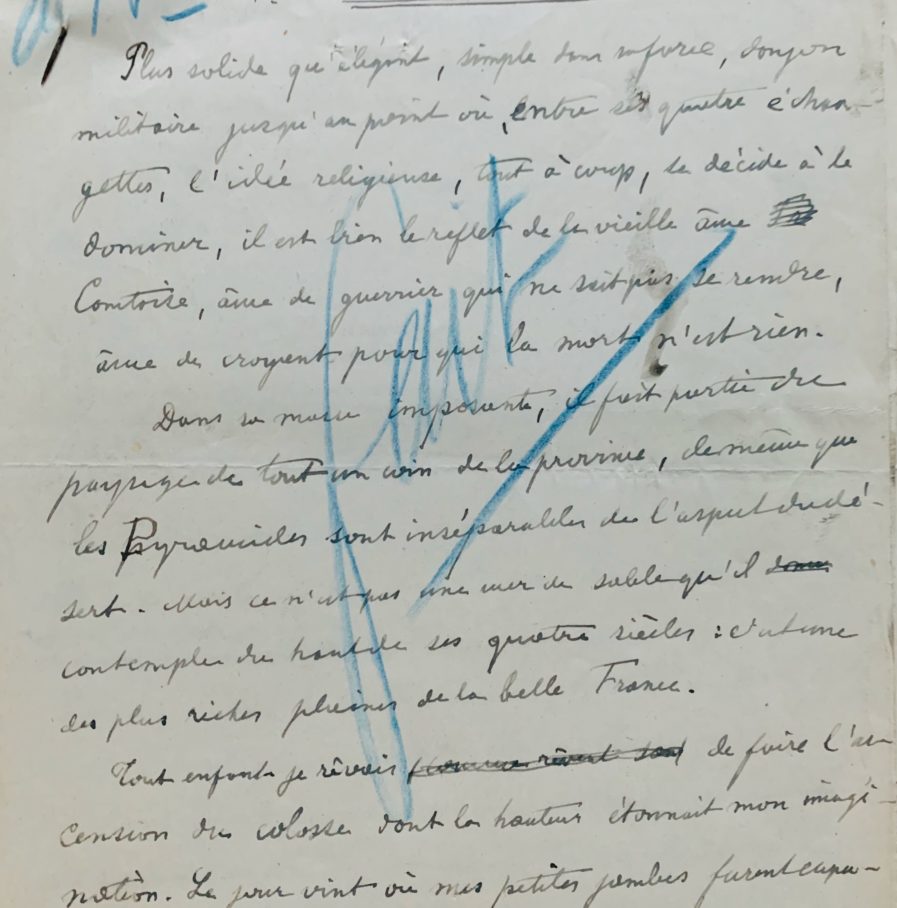 Plus solide qu'élégant, simple dans sa force, donjon
militaire jusqu'au point où, entre ses quatre échau-
gettes, l'idée religieuse, tout à coup, se décide à le
dominer, il est bien le reflet de la vieille âme
Comtoise, âme de guerrier qui ne sait pas se rendre,
âme de croyant pour qui la mort n'est rien.
Dans sa masse imposante, il fait partie du
paysage de tout un coin de la province, de même que
les Pyramides sont inséparables de l'aspect du dé-
sert. Mais ce n'est pas une mer de sable qu'il
contemple du haut de ses quatre siècles : c'est une
des plus riches plaines de la belle France.
Tout enfant je rêvais de faire l'as-
cension du colosse dont la hauteur étonnait mon imagi-
nation. Le jour vint où mes petites jambes furent capa-